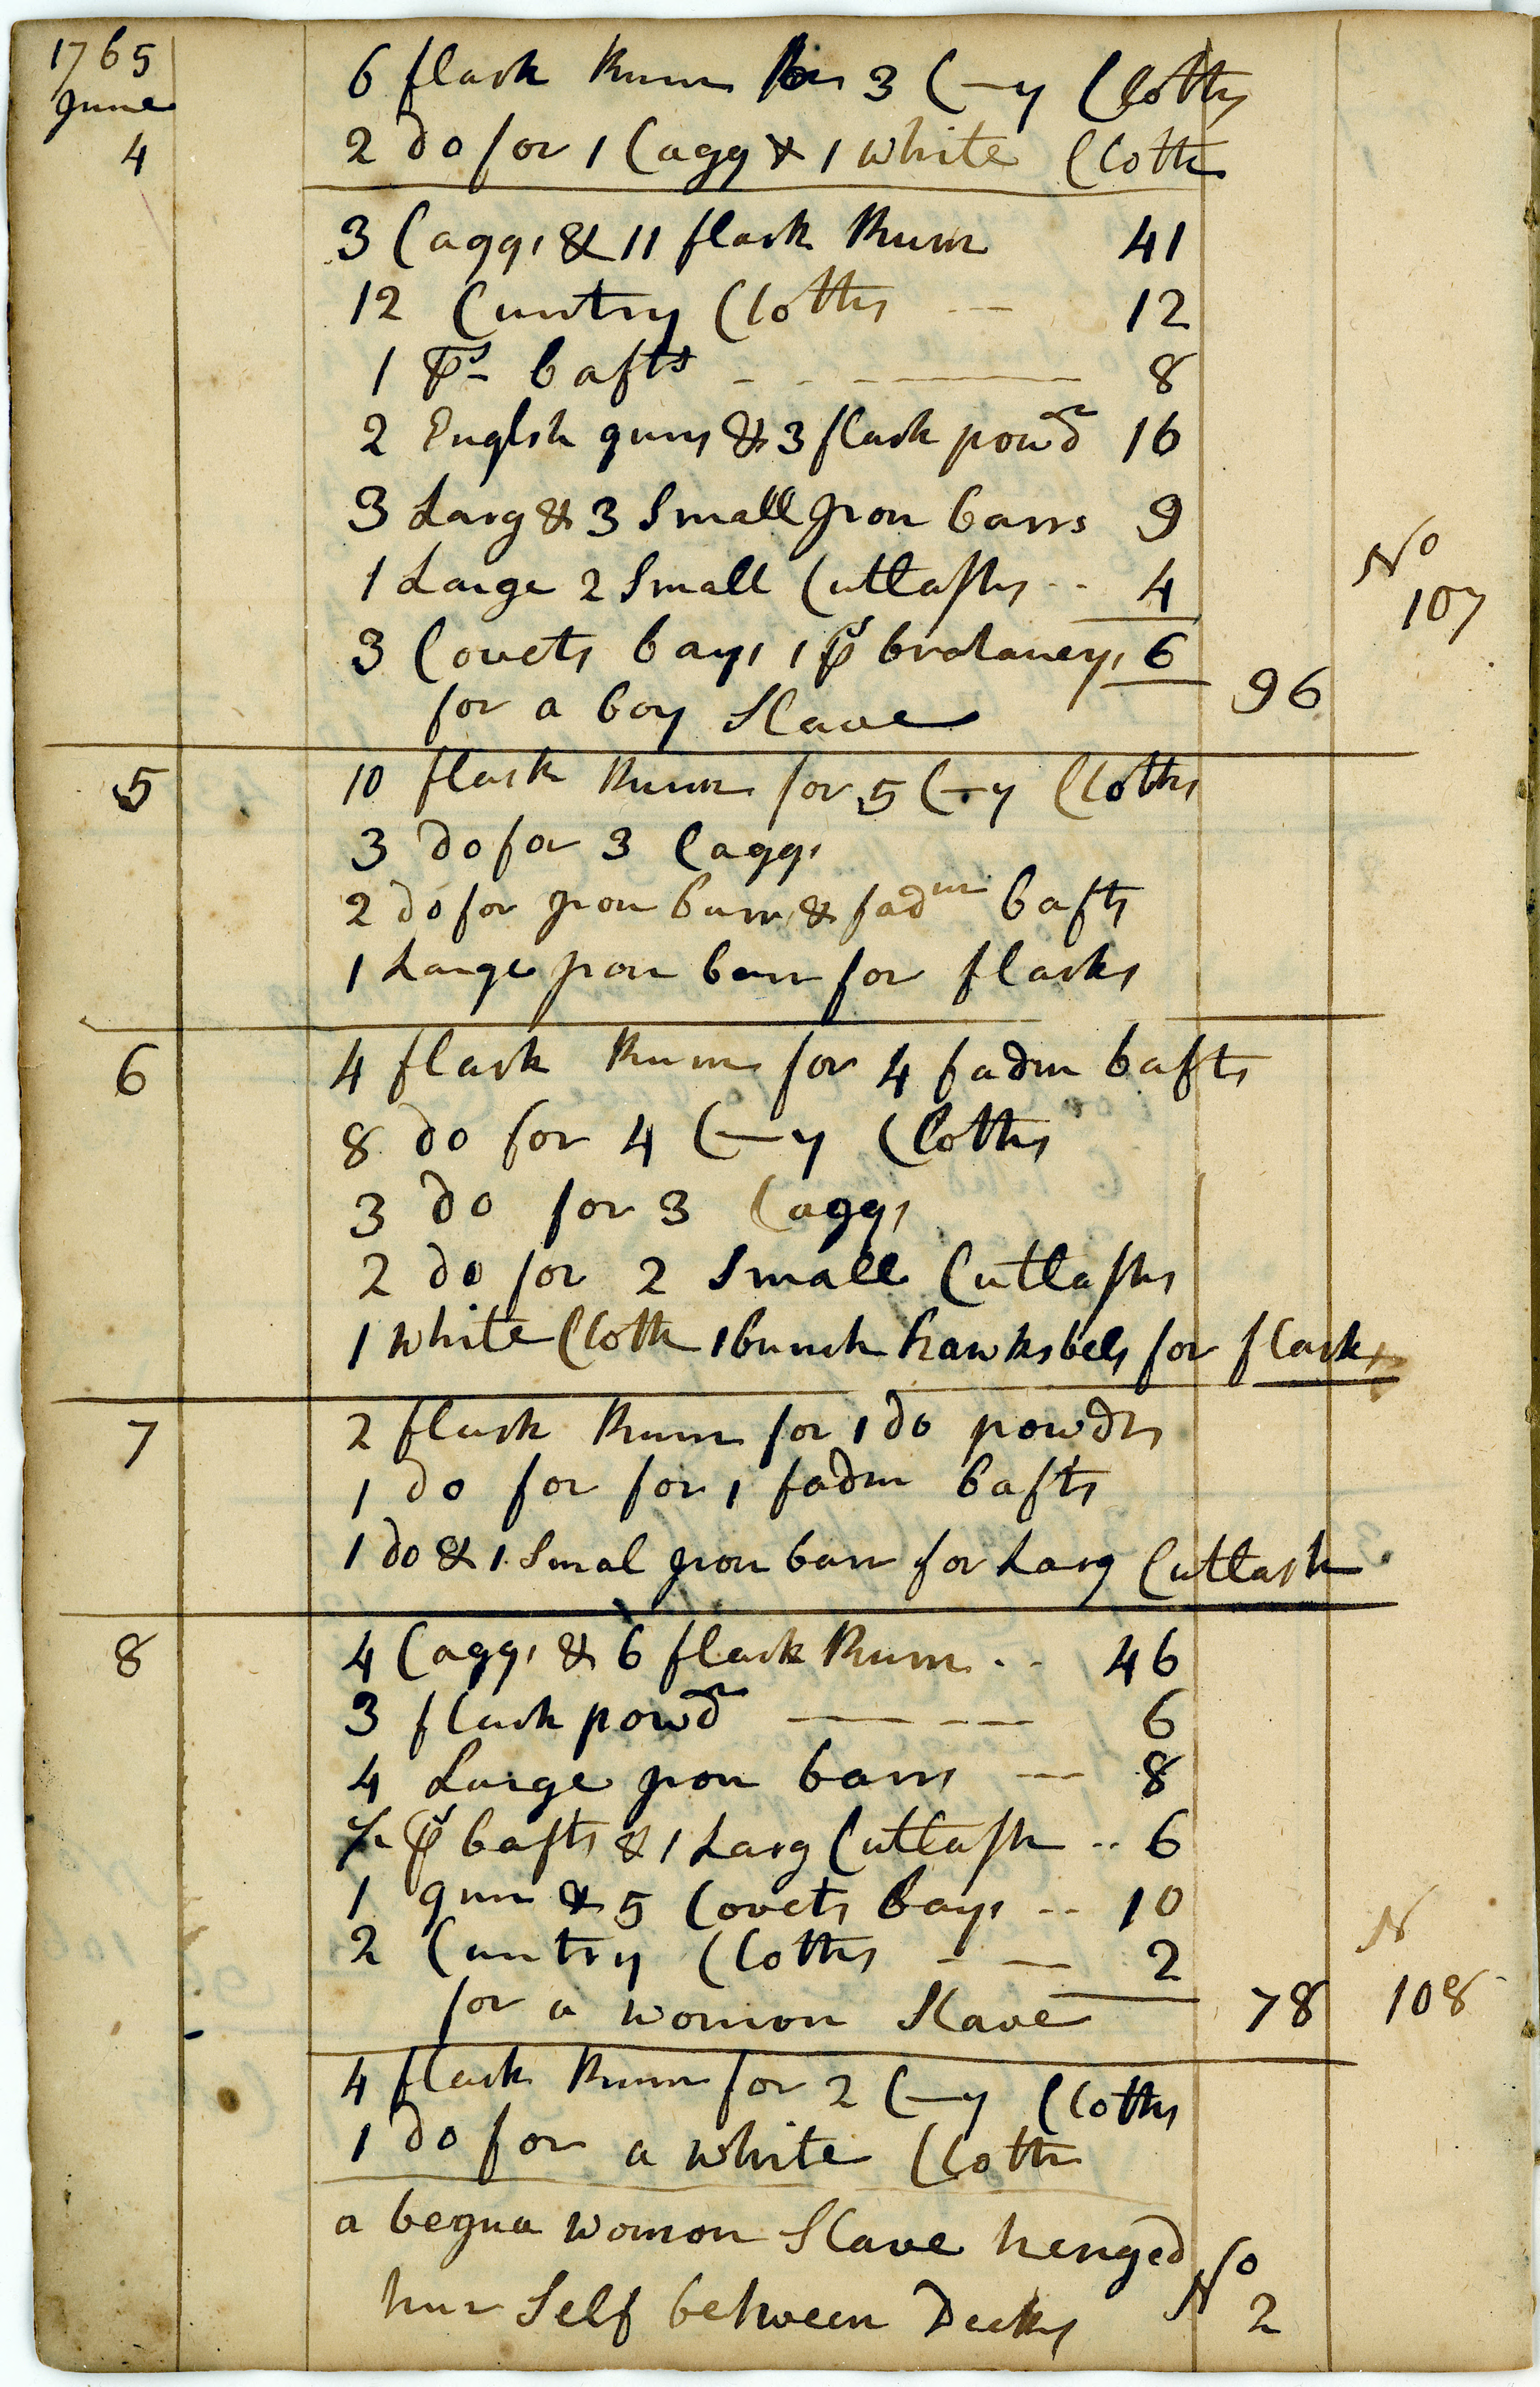 1765
June
4
6 flask Rum for 3 C—y Cloths
2 do for 1 Cagg & 1 white Cloth
3 Caggs & 11 flask Rum 41
12 Cuntry Cloths 12
1 ps bafts 8
2 Englsh guns & 3 flask powdr 16
3 Larg & 3 Small Jron barrs 9
1 Large 2 Small Cutlashs 4
3 Covets bays 1 ps 6
for a boy Slave 96
No
107
5
10 flask Rum for 5 C—y Cloths
3 do for 3 Caggs
2 do for Jron barr & fadm bafts
1 Large Jron barr for flasks
6
4 flask Rum for 4 fadm bafts
8 do for 4 C—y Cloths
3 do for 3 Caggs
2 do for 2 Small Cutlashs
1 white Cloth 1 bunch hawksbels for flasks
7
2 flask Rum for 1 do powdr
1 do for for 1 fadm bafts
1 do & 1 Smal Jron barr for Larg Cutlash
8
4 Caggs & 6 flask Rum 46
3 flask powdr 6
4 Large Jron barrs 8
½ ps bafts & 1 Larg Cutlash 6
1 gun & 5 Covets bays 10
2 Cuntry Cloths 2
for a womon Slave 78
N
108
4 flask Rum for 2 C—y Cloths
1 do for a white Cloth
a begua womon Slave henged
hur Self between Decks No
2